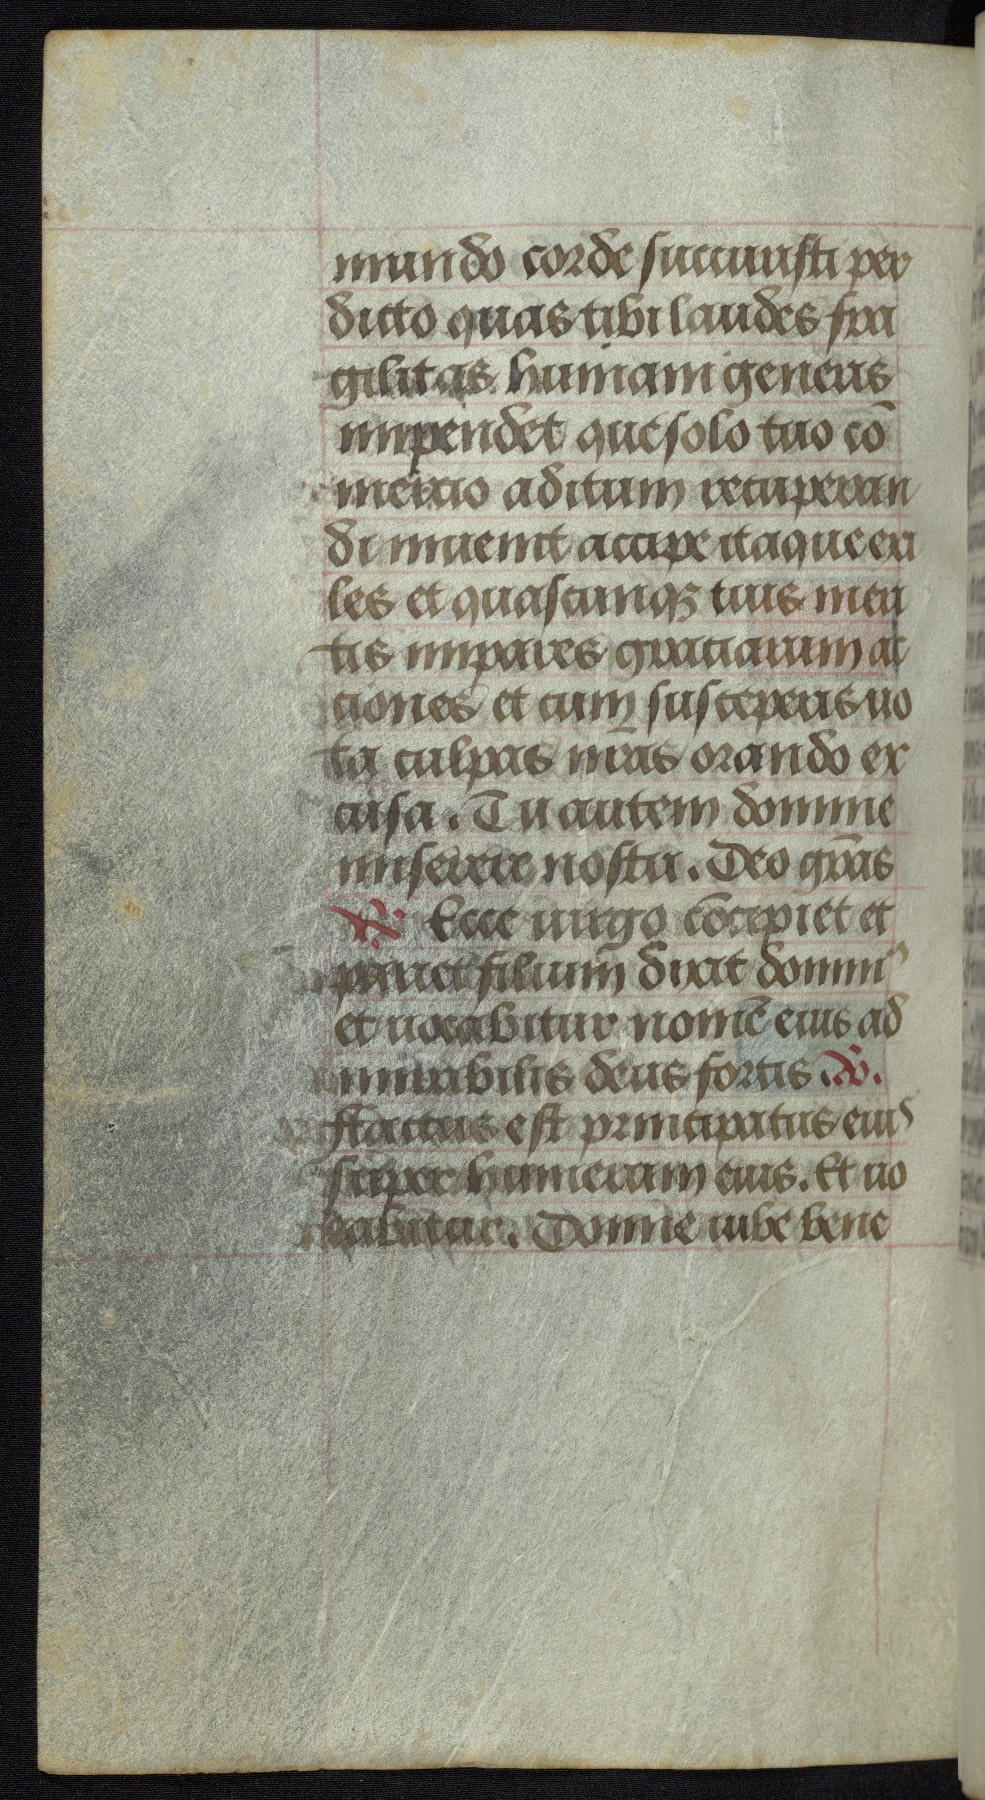 mundo corde succurristi per
dicto quas tibi laudes fra
gilitas humani generis
impendet que solo tuo cō
mercio aditum recuperan
di inuenit accipe itaque exi
les et quascunqꝫ tuis meri
tis impares gratiarum ac
ciones et cum susceperis uo
ta culpas nr̄as orando ex
cusa. Tu autem domine
miserere nostri. Deo gr̄as
℟. Ecce uirgo cōcipiet et
pariet filium dixit dominꝰ
et uocabitur nomē eius ad
mirabilis deus fortis. ℣.
ffactus est principatus eius
super humerum eius. Et uo
cabitur. Domne iube bene